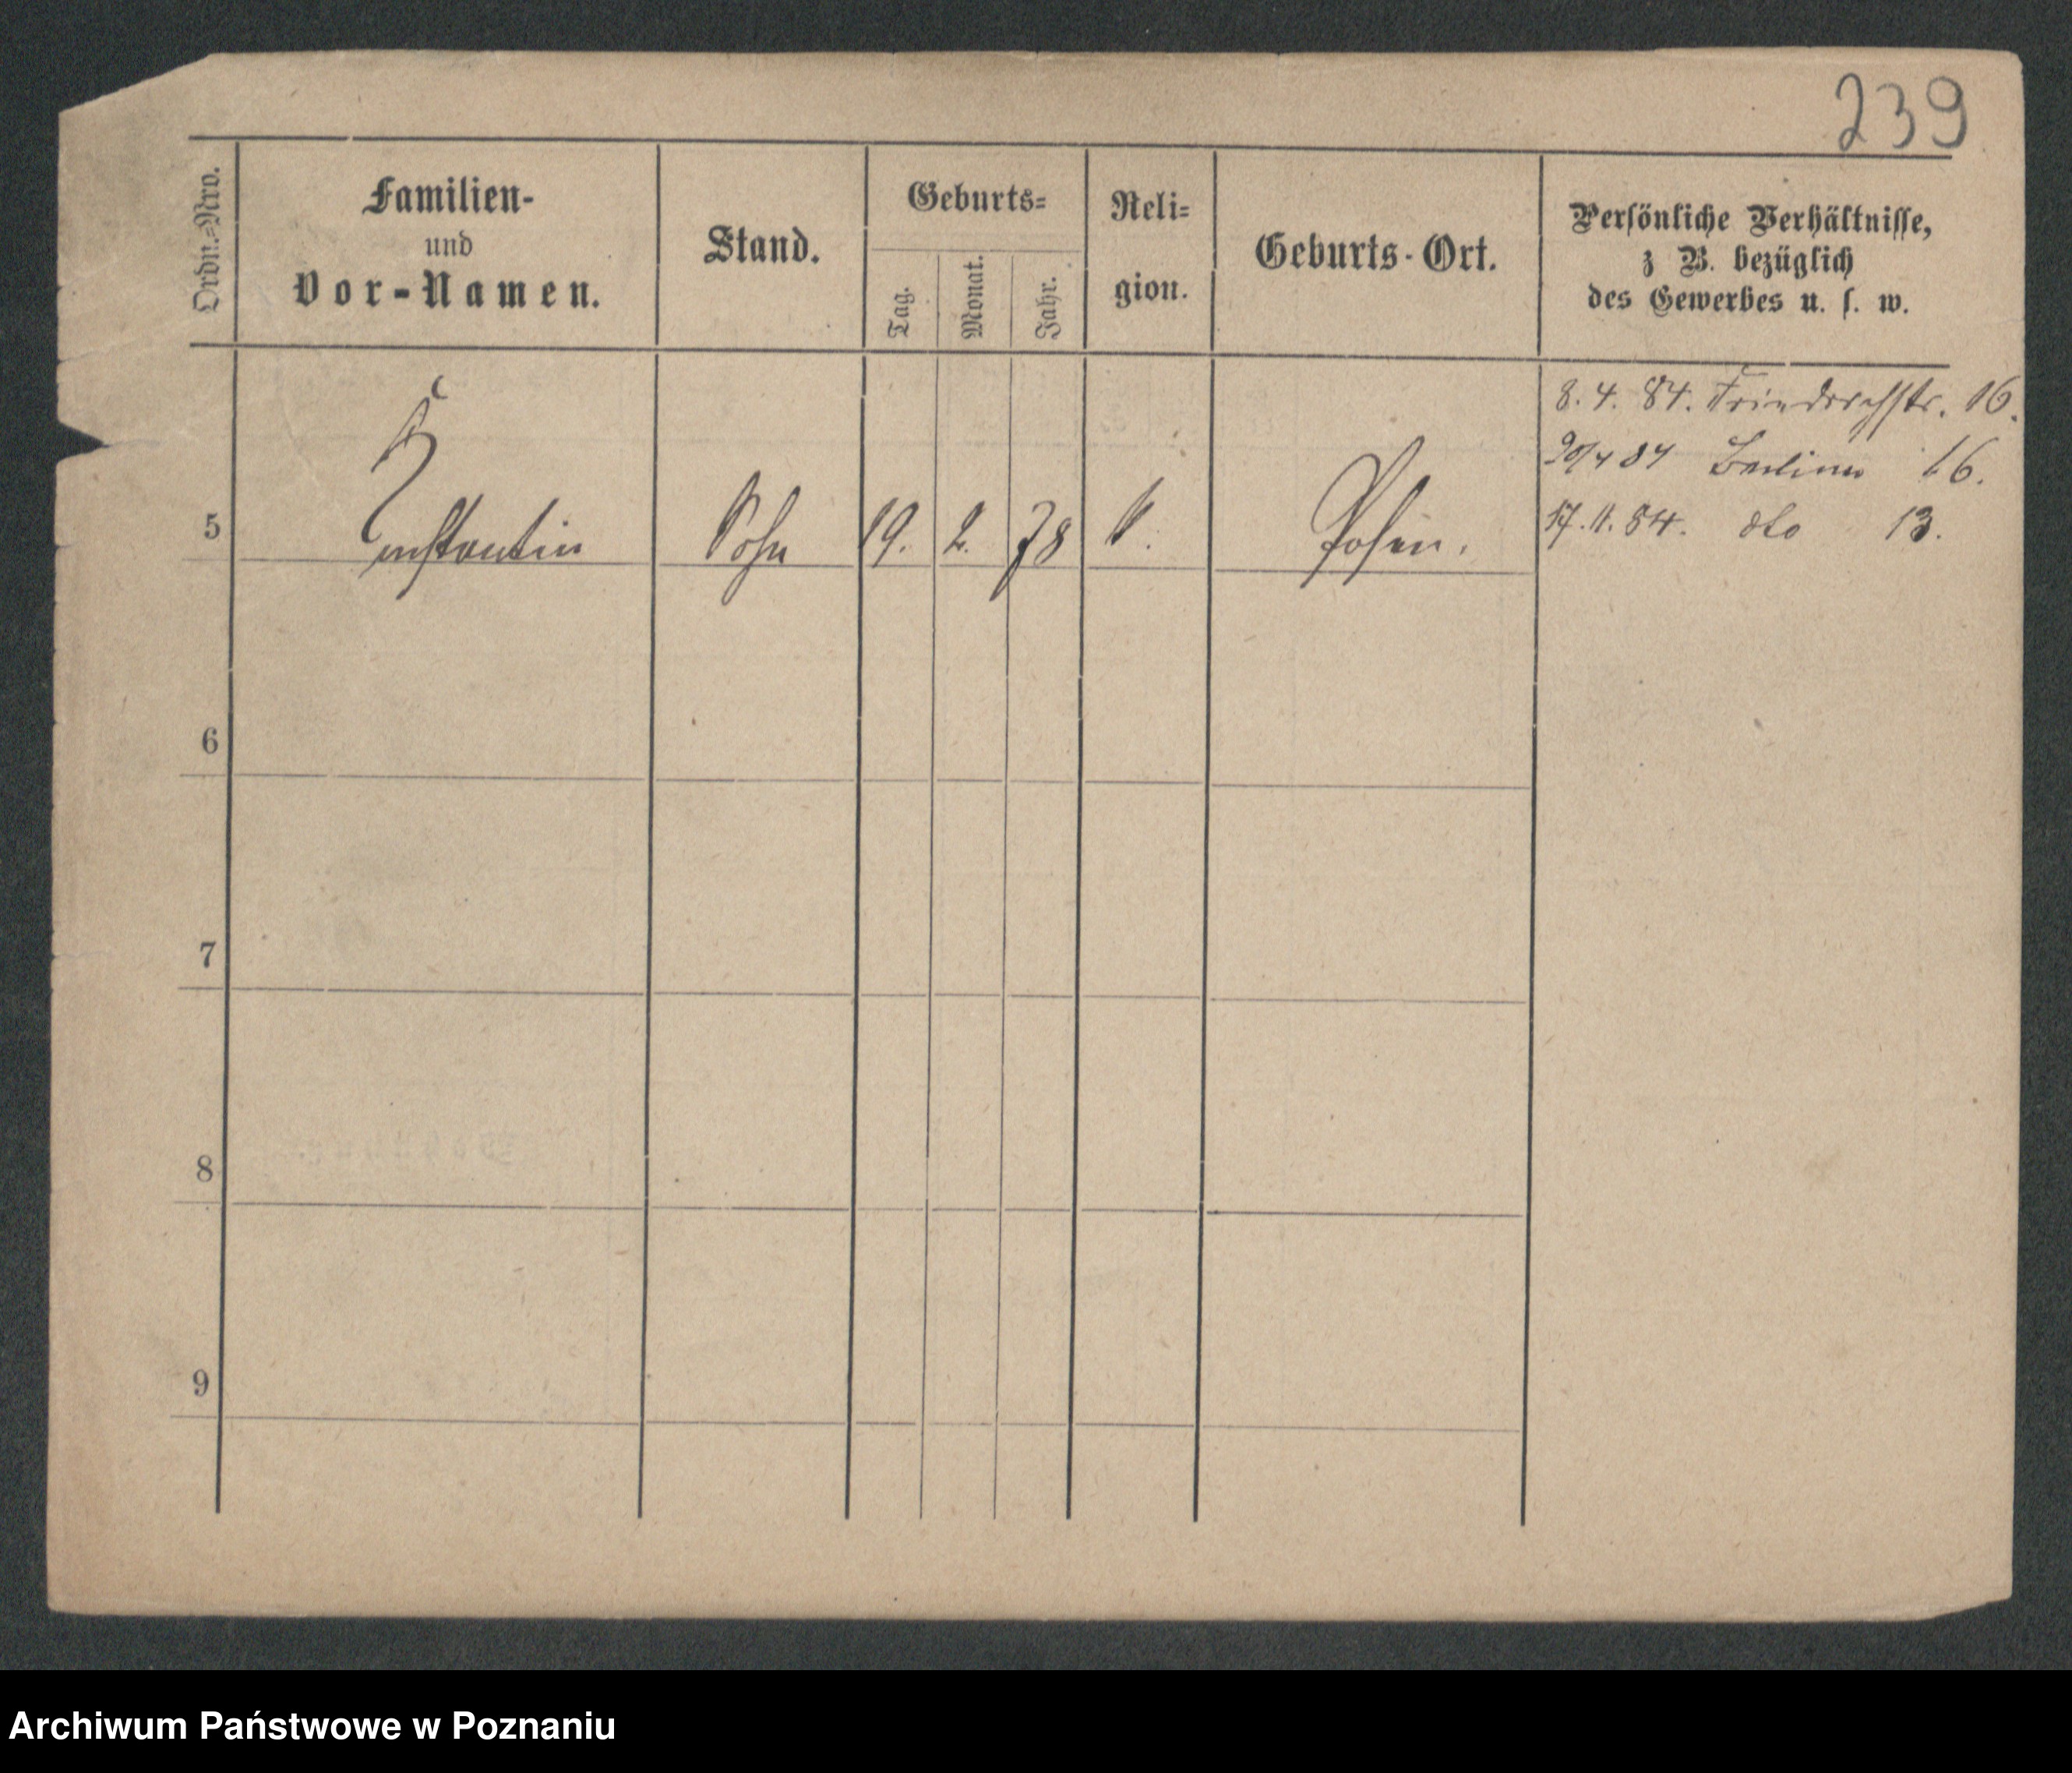 239
Ordn.=Nro.
Familien-
und
Vor-Namen.
Stand.
Geburts=
Tag.
Monat.
Jahr.
Reli=
gion.
Geburts-Ort.
Persönliche Verhältnisse,
z B. bezüglich
des Gewerbes u. s. w.
8. 4. 84. Friedrichstr. 16.
84 Berliner 16.
17. 11. 84. dto 13.
5 Constantin Sohn 19. 2. 78 k. Posen.
6
7
8
9
Archiwum Państwowe w Poznaniu